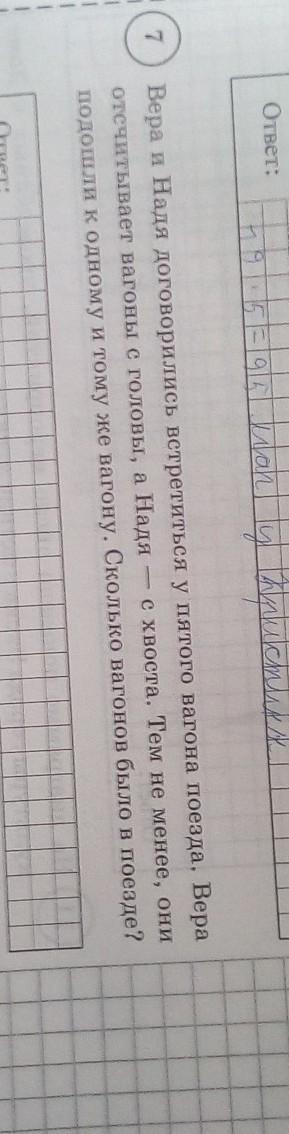 Ответ:
19 · 5 = 95 у Кристины
7 Вера и Надя договорились встретиться у пятого вагона поезда. Вера
отсчитывает вагоны с головы, а Надя — с хвоста. Тем не менее, они
подошли к одному и тому же вагону. Сколько вагонов было в поезде?
Ответ: